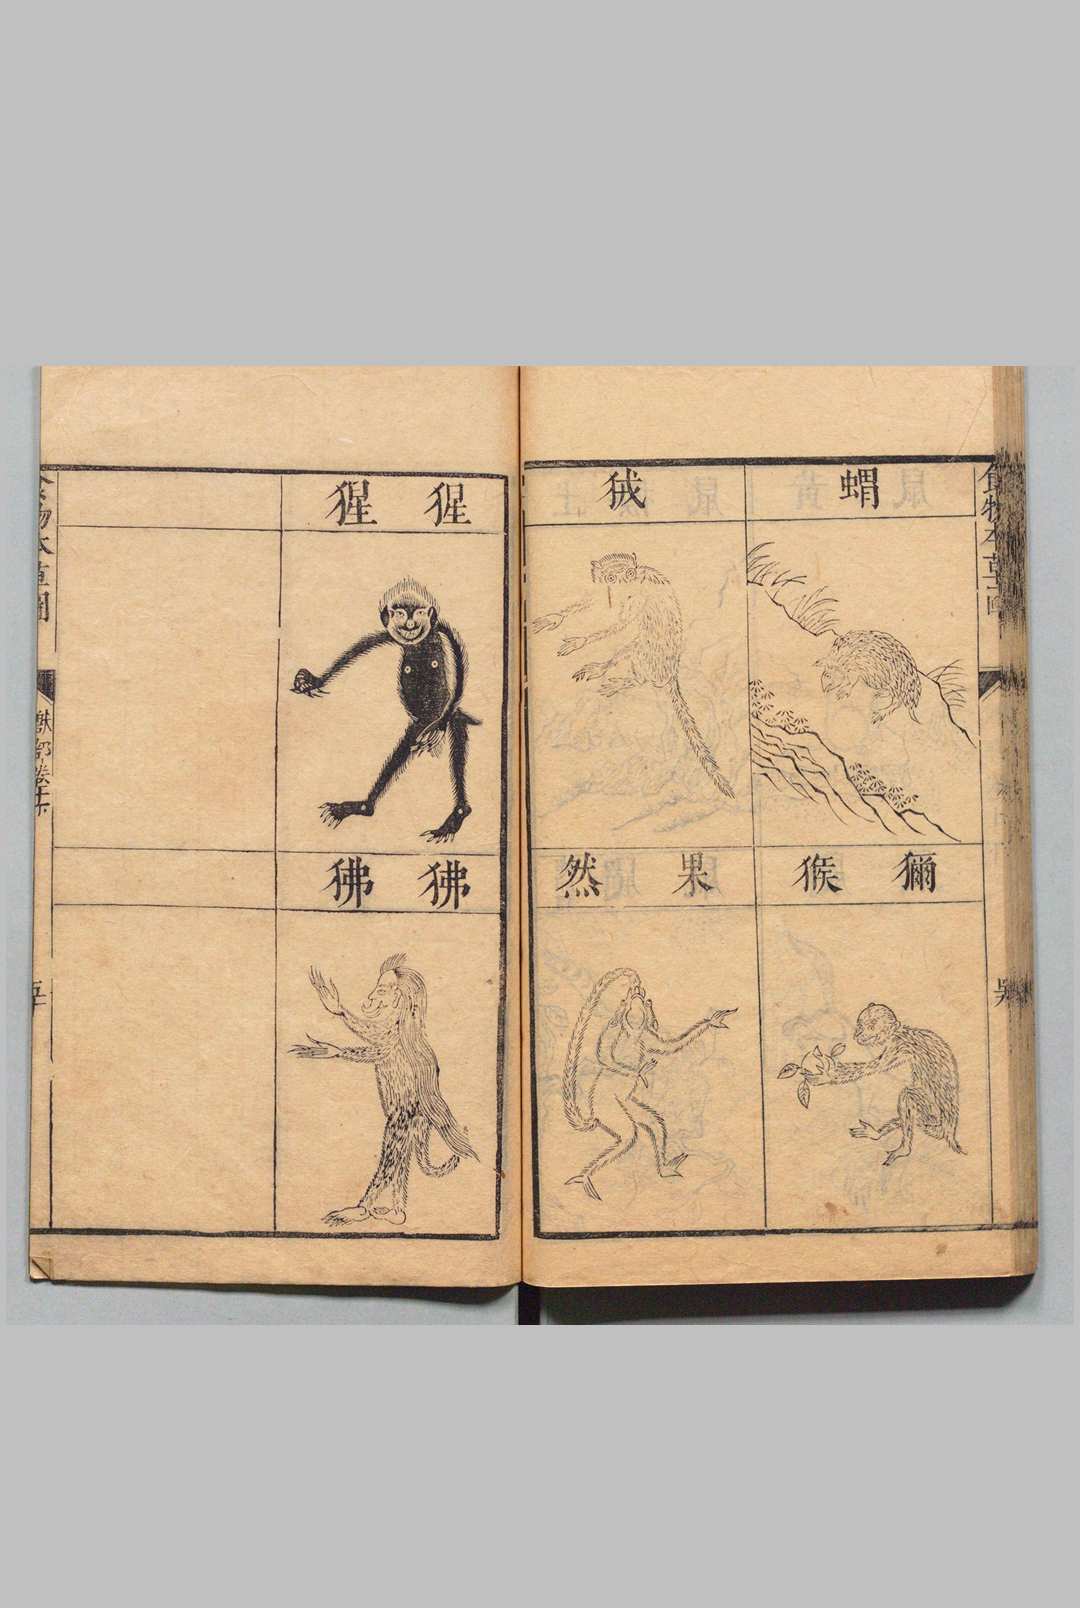 食物本草圖
蝟
狨
獼猴
果然
猩猩
狒狒
食物本草圖
獸部卷十